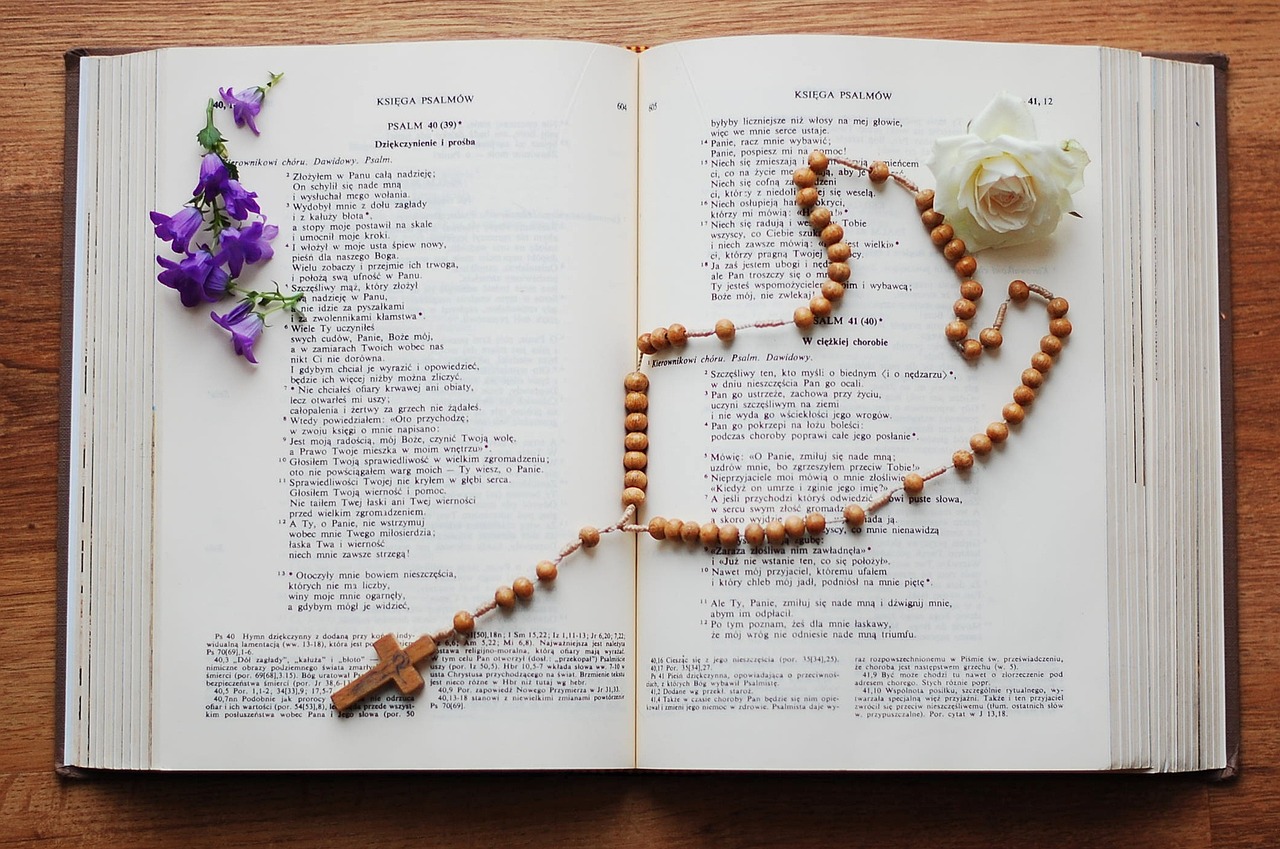 40, 1
KSIĘGA PSALMÓW
604
PSALM 40 (39)*
Dziękczynienie i prośba
Kierownikowi chóru. Dawidowy. Psalm.
2 Złożyłem w Panu całą nadzieję;
On schylił się nade mną
i wysłuchał mego wołania.
3 Wydobył mnie z dołu zagłady
i z kałuży błota*,
a stopy moje postawił na skale
i umocnił moje kroki.
4 I włożył w moje usta śpiew nowy,
pieśń dla naszego Boga.
Wielu zobaczy i przejmie ich trwoga,
i położą swą ufność w Panu.
Szczęśliwy mąż, który złożył
nadzieję w Panu,
nie idzie za pyszałkami
i za zwolennikami kłamstwa*.
6 Wiele Ty uczyniłeś
swych cudów, Panie, Boże mój,
a w zamiarach Twoich wobec nas
nikt Ci nie dorówna.
I gdybym chciał je wyrazić i opowiedzieć,
będzie ich więcej niżby można zliczyć.
7 * Nie chciałeś ofiary krwawej ani obiaty,
lecz otwarłeś mi uszy;
całopalenia i żertwy za grzech nie żądałeś.
8 Wtedy powiedziałem: «Oto przychodzę;
w zwoju księgi o mnie napisano:
9 Jest moją radością, mój Boże, czynić Twoją wolę,
a Prawo Twoje mieszka w moim wnętrzu»*.
10 Głosiłem Twoją sprawiedliwość w wielkim zgromadzeniu;
oto nie powściągałem warg moich — Ty wiesz, o Panie.
11 Sprawiedliwości Twojej nie kryłem w głębi serca.
Głosiłem Twoją wierność i pomoc.
Nie taiłem Twej łaski ani Twej wierności
przed wielkim zgromadzeniem.
12 A Ty, o Panie, nie wstrzymuj
wobec mnie Twego miłosierdzia;
łaska Twa i wierność
niech mnie zawsze strzegą!
13 * Otoczyły mnie bowiem nieszczęścia,
których nie ma liczby,
winy moje mnie ogarnęły,
a gdybym mógł je widzieć,
Ps 40 Hymn dziękczynny z dodaną przy
widualną lamentacją (ww. 13-18), która jest
Ps 70(69),1-6.
40,3 „Dół zagłady”, „kałuża” i „błoto” —
nimiczne obrazy podziemnego świata
śmierci (por. 69(68),3.15). Bóg uratował
bezpieczeństwa śmierci (por Jr 38,6-
40,5 Por. 1,1-2, 34[33],9; 17,5-7
40,7nn Podobnie jak prorocy, nie odrzuca
ofiar i ich wartości (por. 54[53],8), przede wszyst-
kim posłuszeństwo wobec Pana i Jego słowa (por. 50
[50],18n; 1 Sm 15,22; Iz 1,11-13; Jr 6,20; 7,22;
6,6; Am 5,22; Mi 6,8). Najważniejsza jest należyta
postawa religijno-moralna, którą ofiary mają wyrażać.
W tym celu Pan otworzył (dosł.: „przekopał”) Psalmiście
uszy (por. Iz 50,5). Hbr 10,5-7 wkłada słowa ww. 7-10 w
usta Chrystusa przychodzącego na świat. Brzmienie tekstu
jest nieco różne w Hbr niż tutaj wg hebr.
40,9 Por. zapowiedź Nowego Przymierza w Jr 31,33.
40,13-18 stanowi z niewielkimi zmianami powtórzenie
Ps 70[69].
605
KSIĘGA PSALMÓW
41, 12
byłyby liczniejsze niż włosy na mej głowie,
więc we mnie serce ustaje.
14 Panie, racz mnie wybawić;
Panie, pospiesz mi na pomoc!
15 Niech się zmieszają i
ci, co na życie moje aby je
Niech się cofną
ci, którzy z niedoli mej się weselą.
16 Niech osłupieją hańbą okryci,
którzy mi mówią: «Ha
17 Niech się radują i weselą w Tobie
wszyscy, co Ciebie szukają
i niech zawsze mówią: «Pan jest wielki»*
ci, którzy pragną Twojej pomocy.
18 Ja zaś jestem ubogi i nędzny,
ale Pan troszczy się o mnie.
Ty jesteś wspomożycielem moim i wybawcą;
Boże mój, nie zwlekaj!
PSALM 41 (40)*
W ciężkiej chorobie
1 Kierownikowi chóru. Psalm. Dawidowy.
2 Szczęśliwy ten, kto myśli o biednym ⟨i o nędzarzu⟩*,
w dniu nieszczęścia Pan go ocali.
3 Pan go ustrzeże, zachowa przy życiu,
uczyni szczęśliwym na ziemi
i nie wyda go wściekłości jego wrogów.
4 Pan go pokrzepi na łożu boleści:
podczas choroby poprawi całe jego posłanie*.
5 Mówię: «O Panie, zmiłuj się nade mną;
uzdrów mnie, bo zgrzeszyłem przeciw Tobie!»
6 Nieprzyjaciele moi mówią o mnie złośliwie:
«Kiedyż on umrze i zginie jego imię?»
7 A jeśli przychodzi któryś odwiedzić, mówi puste słowa,
w sercu swym złość gromadzi,
a skoro wyjdzie za bramę, rozpowiada ją.
wszyscy, co mnie nienawidzą
zgubę:
9 «Zaraza złośliwa nim zawładnęła»*
i «Już nie wstanie ten, co się położył».
10 Nawet mój przyjaciel, któremu ufałem
i który chleb mój jadł, podniósł na mnie piętę*.
11 Ale Ty, Panie, zmiłuj się nade mną i dźwignij mnie,
abym im odpłacił.
12 Po tym poznam, żeś dla mnie łaskawy,
że mój wróg nie odniesie nade mną triumfu.
40,16 Ciesząc się z jego nieszczęścia (por. 35[34],25).
40,17 Por. 35[34],27.
Ps 41 Pieśń dziękczynna, opowiadająca o przeciwnoś-
ciach, z których Bóg wybawił Psalmistę.
41,2 Dodane wg przekł. staroż.
41,4 Także w czasie choroby Pan będzie się nim opie-
kował i zmieni jego niemoc w zdrowie. Psalmista daje wy-
raz rozpowszechnionemu w Piśmie św. przeświadczeniu,
że choroba jest następstwem grzechu (w. 5).
41,9 Być może chodzi tu nawet o złorzeczenie pod
adresem chorego. Stych różnie popr.
41,10 Wspólnota posiłku, szczególnie rytualnego, wy-
twarzała specjalną więź przyjaźni. Także i ten przyjaciel
zwrócił się przeciw nieszczęśliwemu (tłum. ostatnich słów
w. przypuszczalne). Por. cytat w J 13,18.